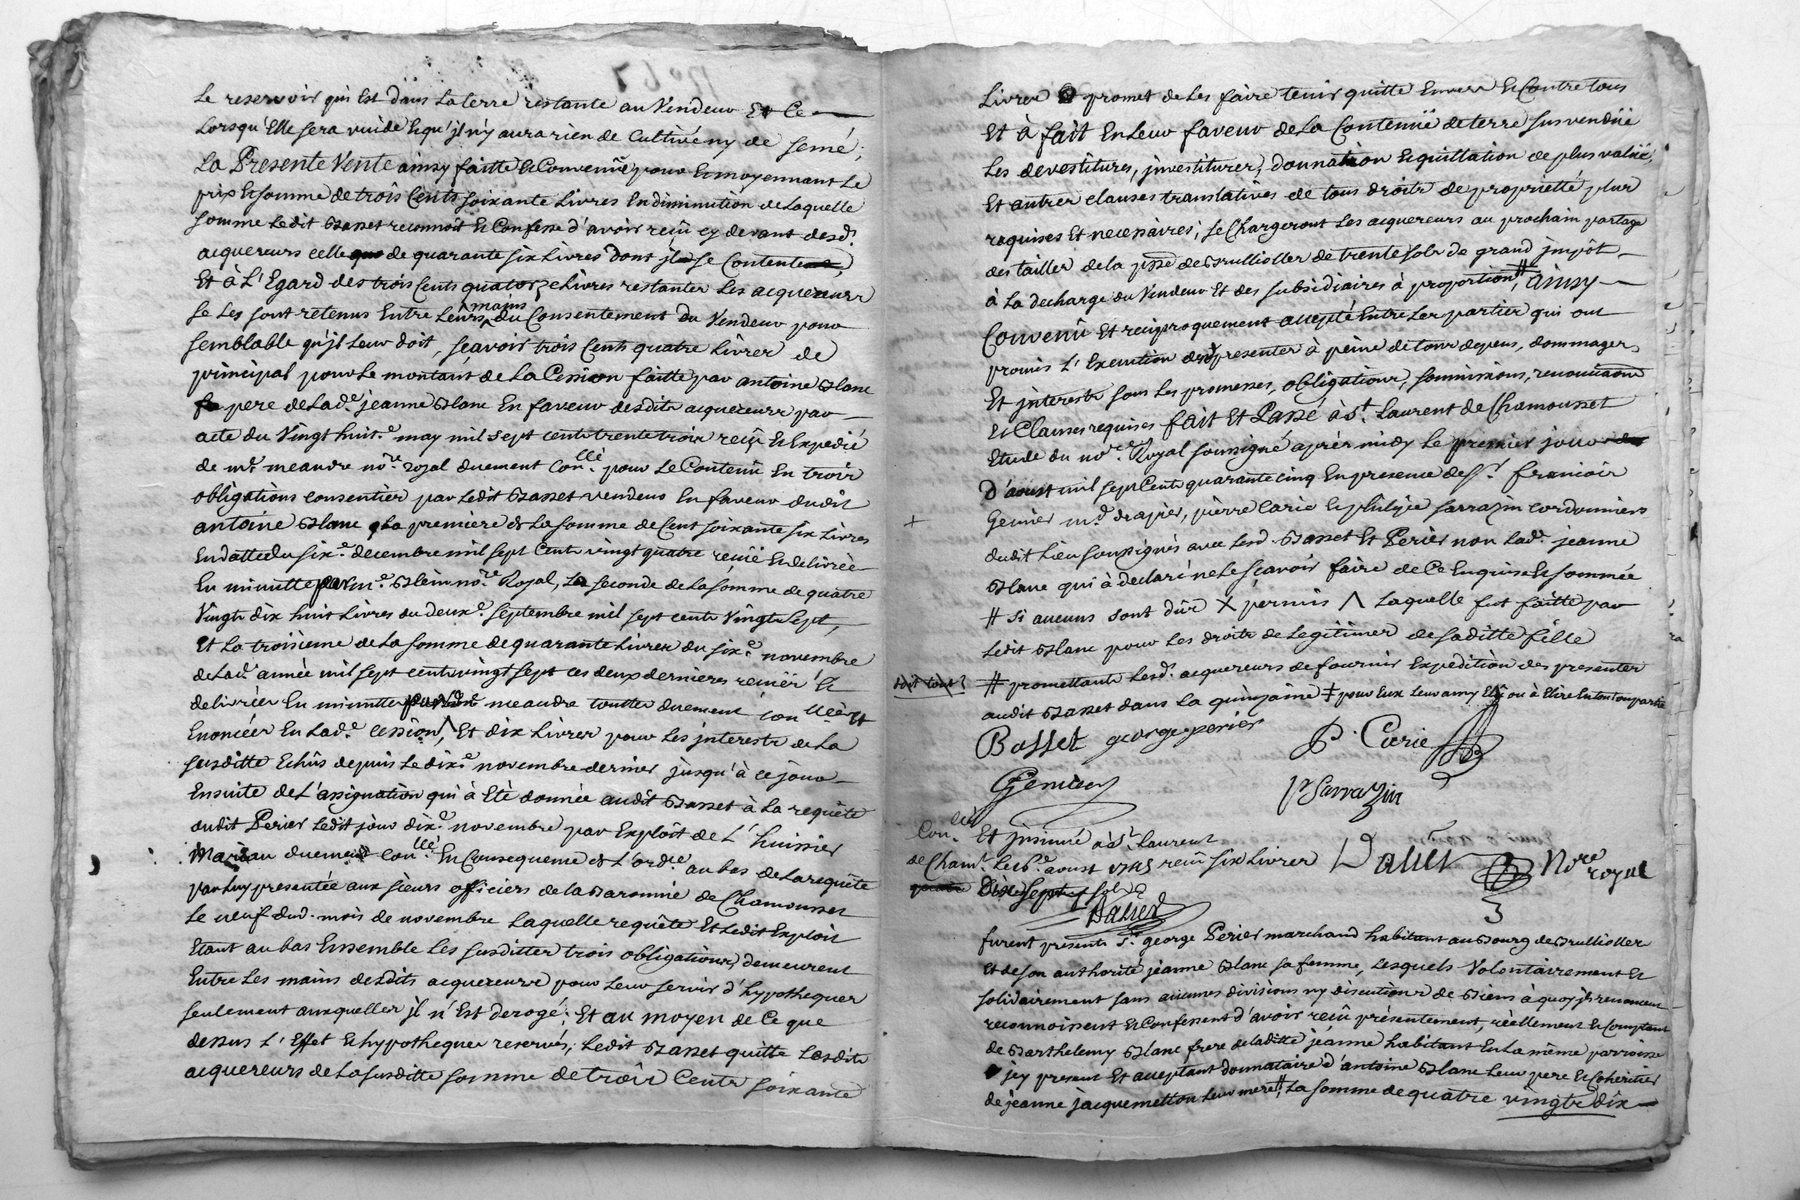 Le reservoir qui Est dans La terre restante au Vendeur Et Ce
Lorsqu'Elle sera vuide Et qu'jl n'y aura rien de Cultivé ny de semé;
La Presente Vente ainsy faitte Et Convenüe pour Et moyennant Le
prix Et somme de trois Cents soixante Livres En diminution de Laquelle
somme Ledit Basset reconnoît Et Confesse d'avoir reçu cy devant desd.
acquereurs celle de quarante six Livres dont jl se Contente
Et à L'Egard des trois Cents quatorze Livres restantes Les acquereurs
se Les sont retenus Entre Leurs mains du Consentement du Vendeur pour
semblable qu'jl Leur doit, sçavoir trois Cents quatre Livres de
principal pour Le montant de La Cession faitte par antoine Blanc
pere de Lad.e jeanne Blanc En faveur desdits acquereurs par
acte du Vingt huit.e may mil sept cents trente trois reçu Et Expedié
de m.e meandre no.re Royal duement Con.llé pour Le Contenu En trois
obligations consenties par Ledit Basset vendeur En faveur dudit
antoine Blanc La premiere de La somme de Cent soixante six Livres
En datte du six.e decembre mil sept Cents vingt quatre reçüe Et delivrée
En minutte par m.e no.re Royal, La seconde de La somme de quatre
Vingts dix huit Livres du deux.e septembre mil sept cents Vingts sept,
Et La troisieme de La somme de quarante Livres du six.e novembre
de Lad. année mil sept cents vingt sept ces deux dernieres reçües Et
delivrées En minuttes par led. meandre touttes duement con.llées Et
Enoncées En Lad.e cession, Λ Et dix Livres pour Les jnterests de La
susditte Echûs depuis Le dix.e novembre dernier jusqu'à ce jour
Ensuite de L'assignation qui à Eté donnée audit Basset à La requête
dudit Perier Ledit jour dix.e novembre par Exploit de L'huissier
duement con.llé En Consequence de L'ord.ce au bas de La requête
par Luy presentée aux sieurs officiers de La Baronnie de Chamousset
Le neuf dud. mois de novembre Laquelle requête Et Ledit Exploit
Etant au bas Ensemble Les susdittes trois obligations, demeurent
Entre Les mains desdits acquereurs pour Leur servir d'hypotheques
seulement auxquelles jl n'Est derogé; Et au moyen de Ce que
dessus L'Effet Et hypotheques reservés, Ledit Basset quitte Lesdits
acquereurs de La susditte somme de trois Cents soixante
Livres Et promet de Les faire tenir quitte Envers Et Contre tous
Et à fait En Leur faveur de La Contenüe de terre susvendüe
Les devestitures, jnvestitures, donnation Et quittation de plus value,
Et autres clauses translatives de tous droits de proprieté plus
requises Et necessaires, se Chargeront Les acquereurs au prochain partage
des tailles de La p.sse de Brullioles de trente sols de grand jmpôt
à La decharge du Vendeur Et des subsidiaires à proportion, # ainsy
Convenu Et reciproquement accepté Entre Les parties qui ont
promis L'Execution des presentes à peine de tous depens, dommages
Et jnterests sous Les promesses, obligations, soumissions, renonciations
Et Clauses requises fait Et Passé à S.t Laurent de Chamousset
Etude du no.re Royal soussigné après midy Le premier jour
D'aoust mil sept Cents quarante cinq En presence de S.r francois
Genier m.d drapier, pierre Carie Et philipe sarrazin cordonniers
dudit Lieu soussignés avec Lesd. Basset Et Perier non Lad. jeanne
Blanc qui à declaré ne Le sçavoir faire de Ce Enquise Et sommée
# Si aucuns sont dûs X permis Λ Laquelle fut faitte par
Ledit Blanc pour Les droits de Legitimes de saditte fille
# promettants Lesd. acquereurs de fournir Expedition des presentes
audit Basset dans La quinzaine ‡ pour Eux Leur amy Elû ou à Elire En tout ou partie
Basset george perier P. Carie
Genier P Sarrazin
Con.llé Et jnsinué à S.t Laurent
de Cham.t Le 6.e aoust 1745 reçu six Livres Dalier No.re royal
Dix sept sols
Dalier
furent presents S.r george Perier marchand habitant au Bourg de Brullioles
Et de son authorité jeanne Blanc sa femme, Lesquels Volontairement Et
solidairement sans aucunes divisions ny discutions de Biens à quoy jls renoncent
reconnoissent Et Confessent d'avoir reçu présentement, réellement Et Comptant
de Barthelemy Blanc frere de Laditte jeanne habitant En La même parroisse
jcy present Et acceptant donnataire d'antoine Blanc Leur pere Et Coheritier
de jeanne jacquemetton Leur mere, # La somme de quatre vingts dix